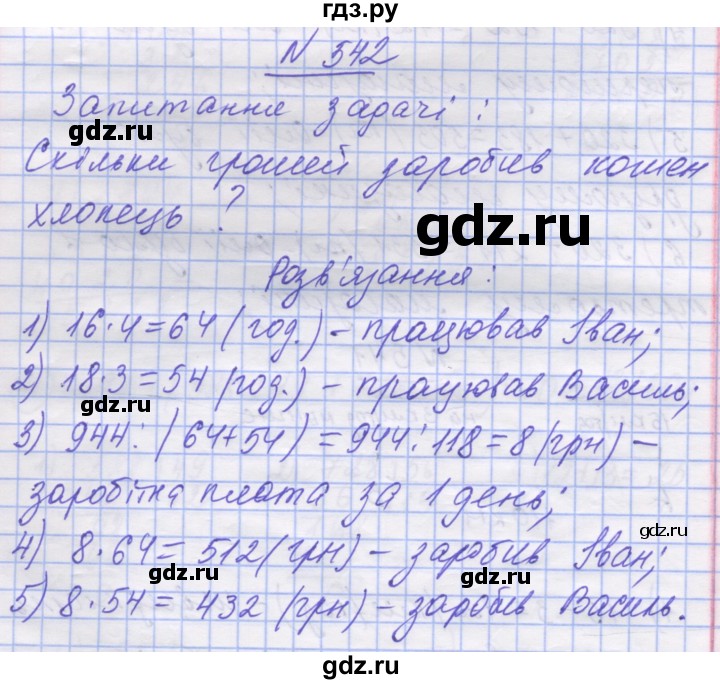 гдз.ру
N 542
Запитання задачі :
gdz.ru
Скільки грошей заробив кошен
хлопець ?
gdz.ru
Розв'язання :
1) 16·4=64 (год.) – працював Іван;
2) 18·3=54 (год.) – працював Василь;
gdz.ru
3) 944:(64+54)=944:118=8(грн) –
заробітна плата за 1 день;
gdz.ru
gdz.ru
4) 8·64=512(грн) – заробив Іван;
gdz.ru
gdz.ru
5) 8·54=432 (грн) – заробив Василь.
gdz.ru